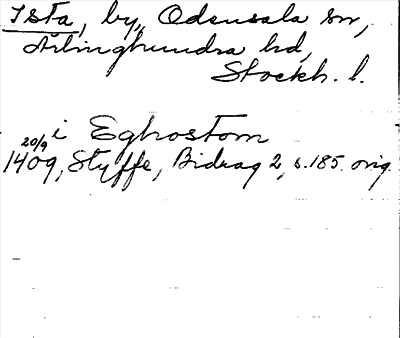 Ista, by, Odensala sn,
Ärlinghundra hd,
Stockh. l.
i Eghostom
20/9
1409, Styffe, Bidrag 2, s. 185. orig.